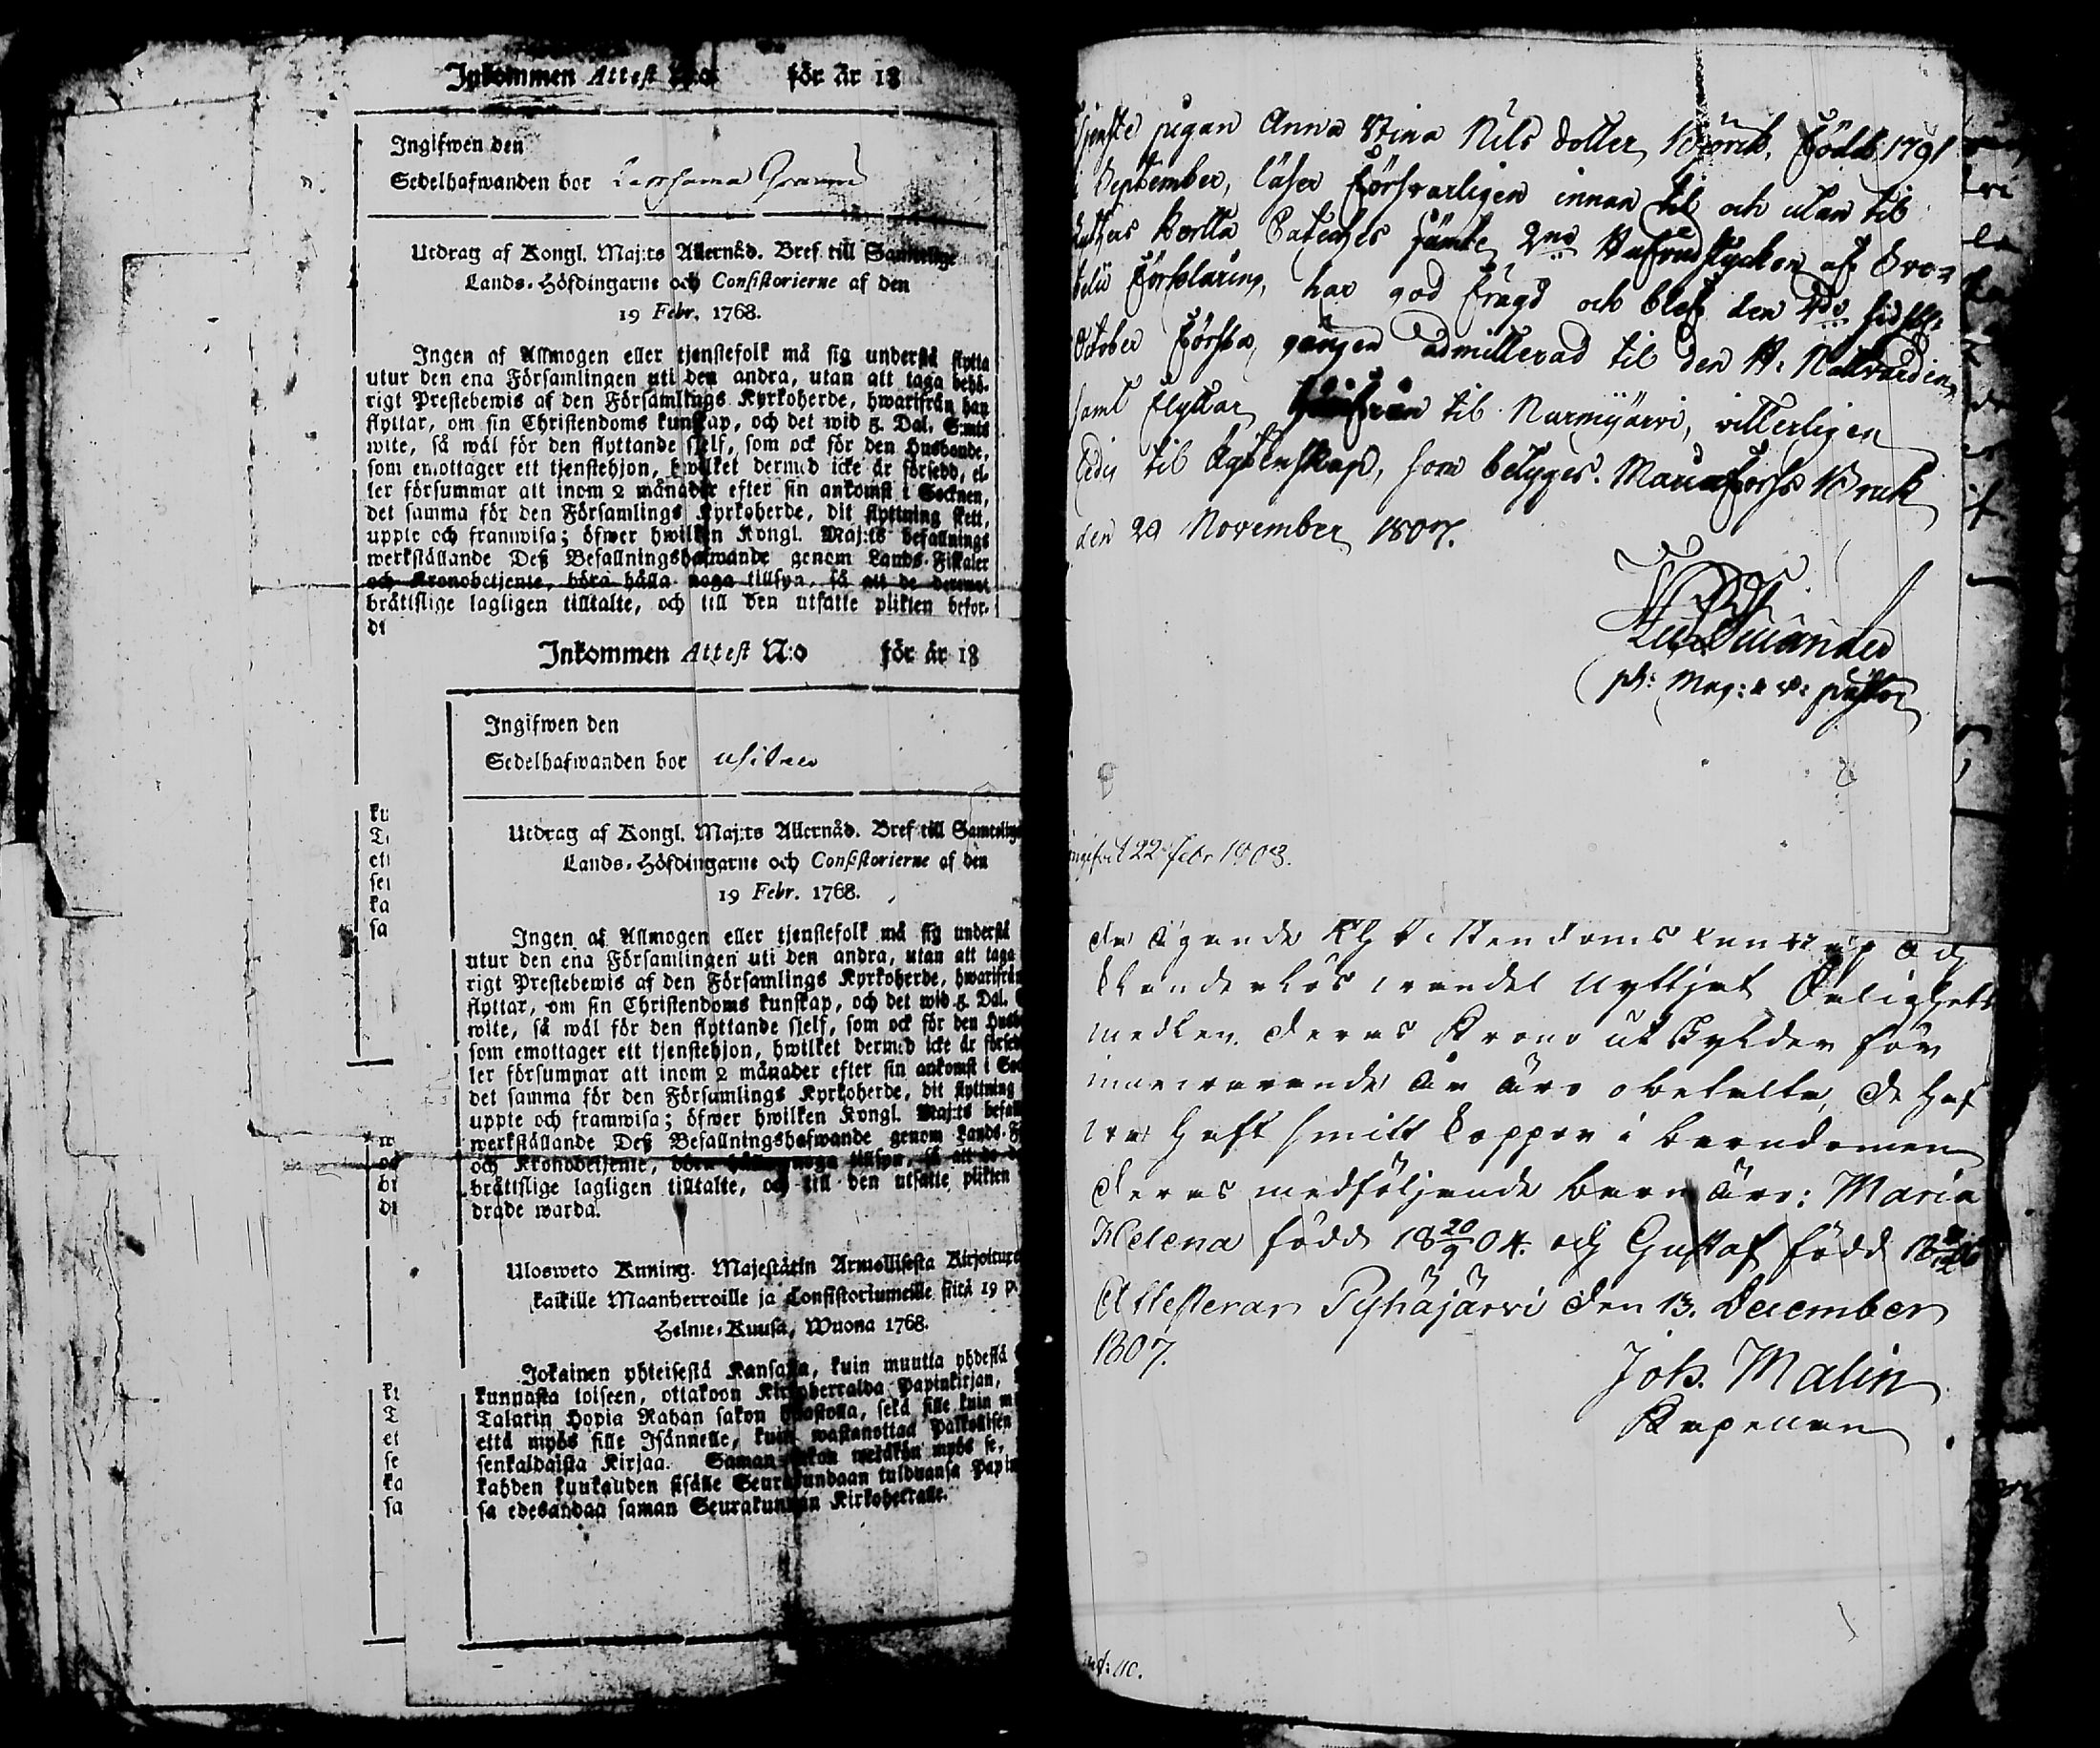 Inkommen Attest N:o för år 18
Ingifwen den
Sedelhafwanden bor
Utdrag af Kongl. Maj:ts Allernåd. Bref till Samtelige
Lands-Höfdingarne och Consistorierne af den
19 Febr. 1768.
Ingen af Allmogen eller tjenstefolk må sig understå flytta
utur den ena Församlingen uti den andra, utan att taga behö-
rigt Prestebewis af den Församlings Kyrkoherde, hwarifrån han
flyttar, om sin Christendoms kunskap, och det wid 5. Dal. S:mts
wite, så wäl för den flyttande sjelf, som ock för den Husbonde,
som emottager ett tjenstehjon, hwilket dermed icke är försedd, el-
ler försummar att inom 2 månader efter sin ankomst i Socknen,
det samma för den Församlings Kyrkoherde, dit flyttning skett,
uppte och framwisa; öfwer hwilken Kongl. Maj:ts befallnings
werkställande Deß Befallningshafwande genom Lands-Fiskaler
och Kronobetjente, böra hålla noga tillsyn, så att de deremot
bråttslige lagligen tilltalte, och till den utsatte plikten befor-
dr
Inkommen Attest N:o för år 18
Ingifwen den
Sedelhafwanden bor
Utdrag af Kongl. Maj:ts Allernåd. Bref till Samtelige
Lands-Höfdingarne och Consistorierne af den
19 Febr. 1768.
Ingen af Allmogen eller tjenstefolk må sig understå
utur den ena Församlingen uti den andra, utan att taga
rigt Prestebewis af den Församlings Kyrkoherde, hwarifrån
flyttar, om sin Christendoms kunskap, och det wid 5. Dal.
wite, så wäl för den flyttande sjelf, som ock för den Husb
som emottager ett tjenstehjon, hwilket dermed icke är försed
ler försummar att inom 2 månader efter sin ankomst i Soc
det samma för den Församlings Kyrkoherde, dit flyttning
uppte och framwisa; öfwer hwilken Kongl. Maj:ts befall
werkställande Deß Befallningshafwande genom Lands-F
och Kronobetjente, böra hålla noga tillsyn, så att de de
bråttslige lagligen tilltalte, och till den utsatte plikten
drade warda.
Ulosweto Kuning. Majestätin Armollisesta Kirjoituxe
kaikille Maanherroille ja Consistoriumeille siitä 19 p.
Helme-Kuusa, Wuona 1768.
Jokainen yhteisestä Kansasta, kuin muutta yhdestä
kunnasta toiseen, ottakoon Kirkoherralda Papinkirjan,
Talarin Hopia Rahan sakon uhastolla, sekä sille kuin m
että myös sille Isännelle, kuin wastanottaa Palkollisen
senkaldaista Kirjaa. Saman sakon wetäkön myös se,
kahden kuukauden sisälle Seurakundaan tulduansa Papin
sa edesandaa saman Seurakunnan Kirkoherralle.
pigan Anna Stina Nils dotter Björck, född 1791
September, läser försvarligen innan til och utan til
af Sve-
belii Förklaring, har god frägd och blef den
October första gången admitterad til den H: Nattvarden,
samt flyttar härifrån til Nurmijärvi, vitterligen
ledig til Ägtenskap, som betyges. Mariæfors Bruk
den 29 November 1807.
ph: Mag: & v: pastor
22 febr 1808.
de ägande Christendoms kunskap och
klanderlös wandel nyttjat Salighets
medlen. deras Krono utskylder för
innewarande år äro obetalte, de haf
wa haft smitt koppor i barndomen
deras medföljande barn äro: Maria
Helena född 18 20/9 04. och Gustaf född
Attesterar Pyhäjärvi den 13. December
1807.
Joh. Malin
Kapellan